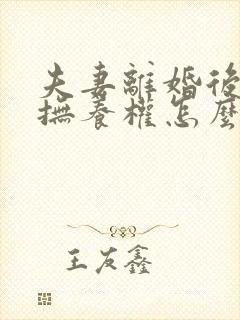 夫妻離婚後
撫養權怎麼
王友鑫